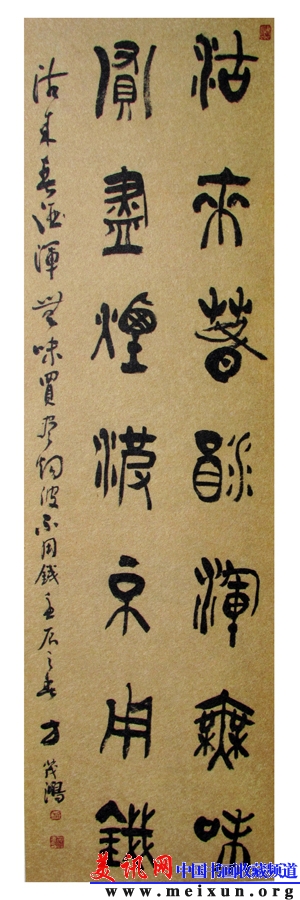 沽來春酒渾無味
買盡煙波不用錢
沽来春酒渾無味買盡烟波不用錢壬辰之春方茂鴻
美讯网 中国书画收藏频道
www.meixun.org